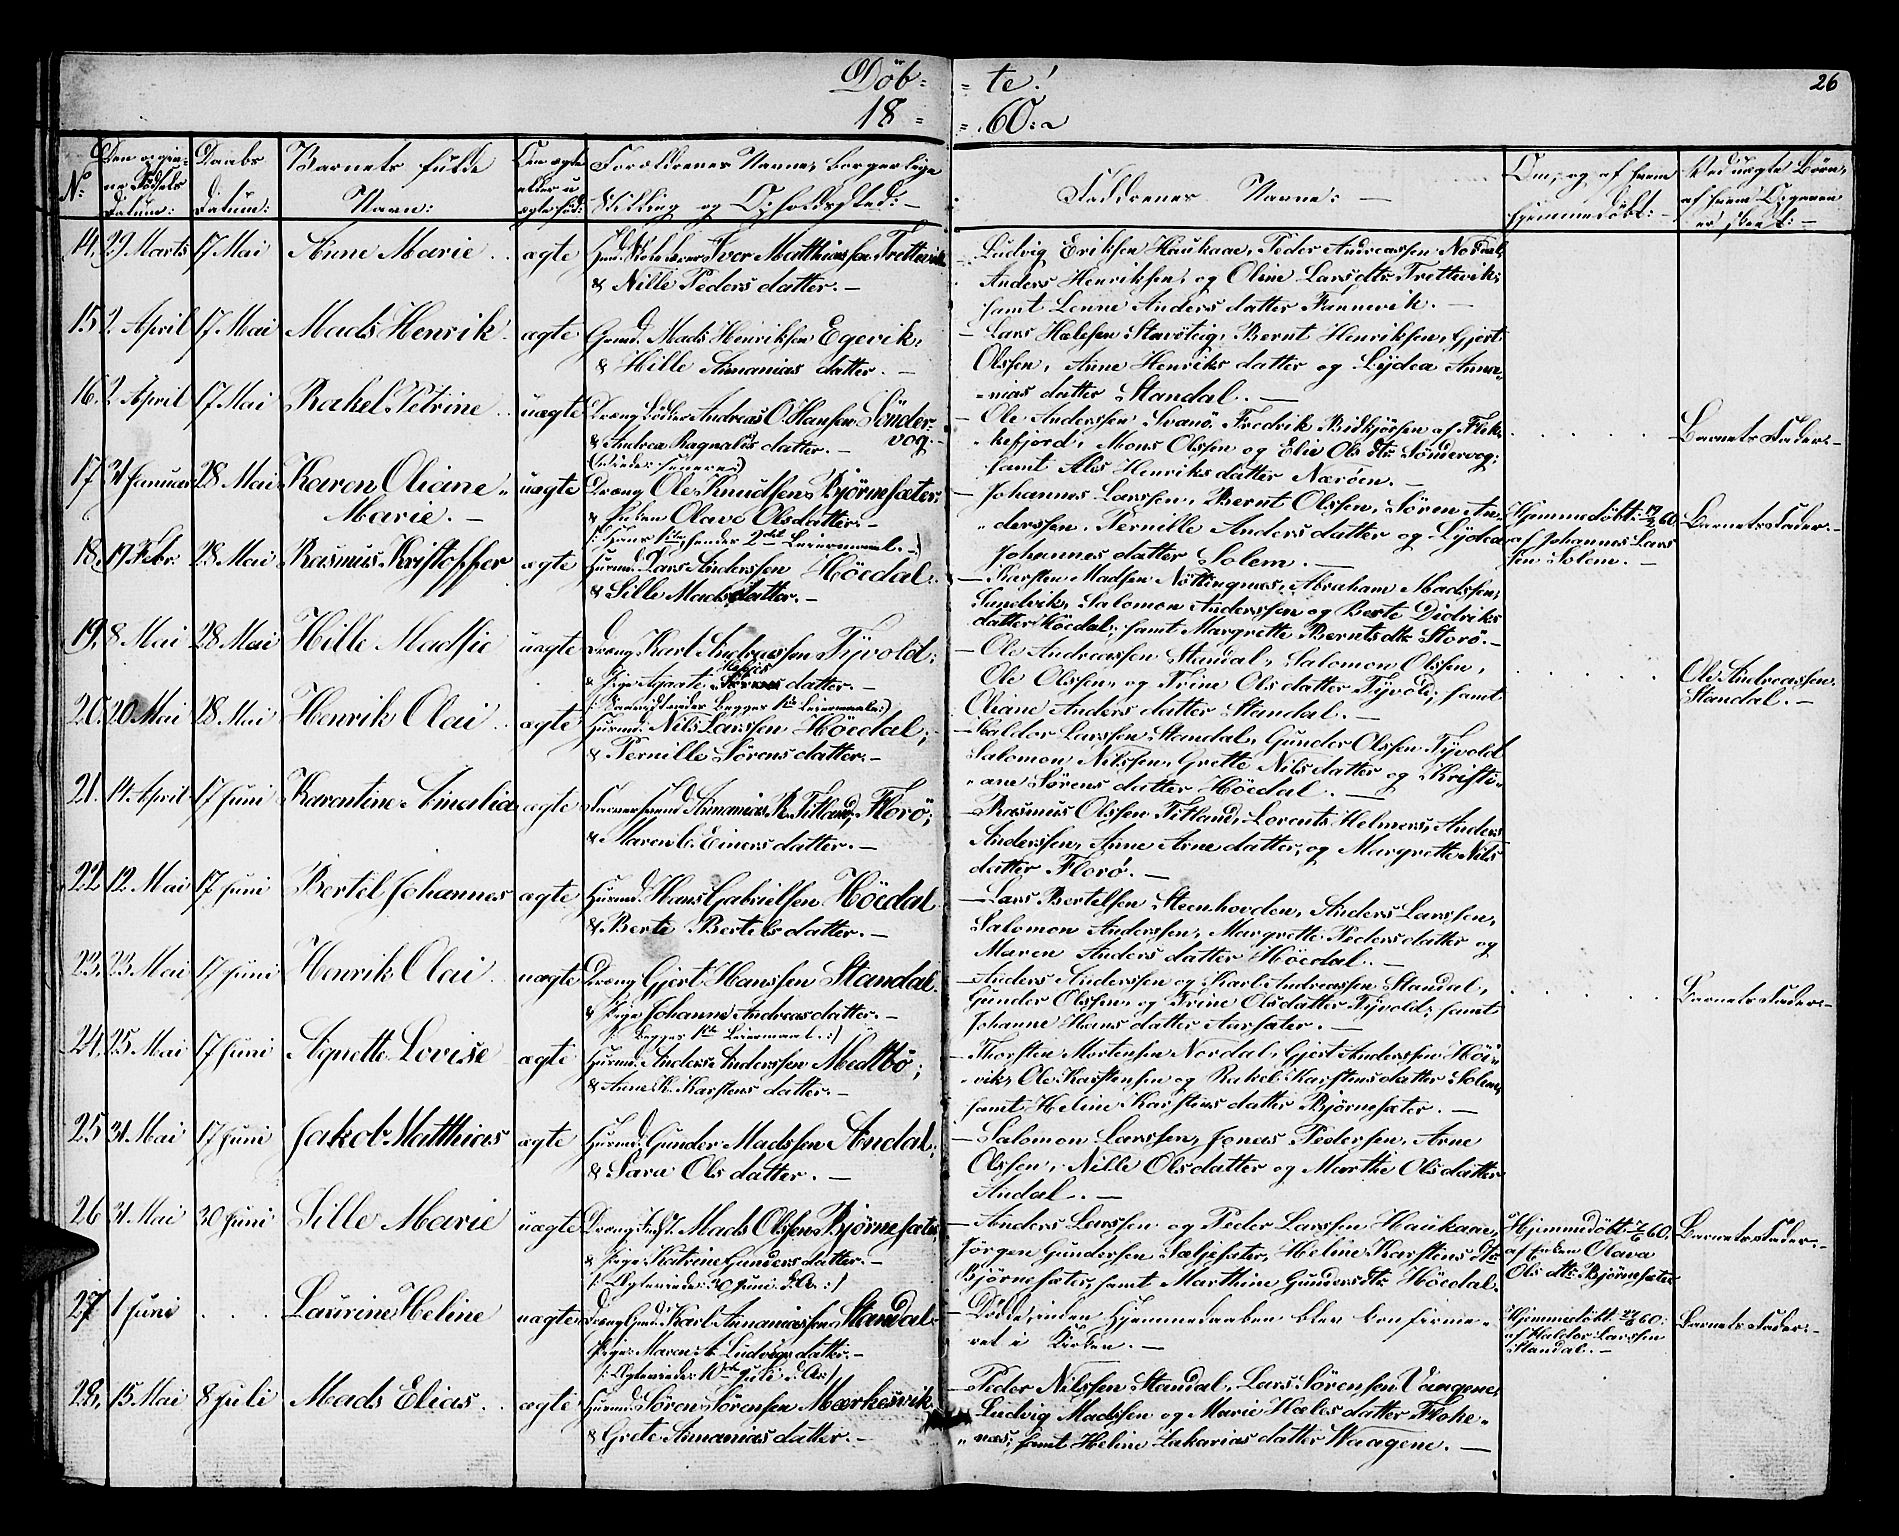 Döb=
= te!
26
18 =
= 60:
No:
Den opgiv-
ne Födsels
Datum:
Daabs
Datum:
Barnets fulde
Navn:
Om ægte
eller u
ægte föd:
Forældrenes Navne, borgerlige
Stilling og Opholdssted:-
Faddrenes Navne:-
Om, og af hvem
hjemmedöbt:-
Ved uægte Börn,
af hvem Opgaven
er skeet:-
14, 29 Marts 17 Mai Anne Marie ægte Iver Matthiassen Trettevik
& Nille Peders datter.-
Ludvig Eriksen Haukaae, Peder Andreassen Nordal,
Anders Henriksen, og Oline Larsdtr Trettevik;
samt Lenne Anders datter Fannevik.-
15 2 April 17 Mai Mads Henrik ægte Gmd. Mads Henriksen Egevik,
& Hille Ananias datter.-
Lars Hælesen Stavöteig, Bernt Henriksen, Gjert
Olssen, Anne Henriks datter og Lydea Anna-
nias datter Standal.-
16. 2 April 17 Mai Rakel Petrine uægte Dræng Andreas O. Hansen Sönder-
vog.-
& Andrea Ragnalds datter.-
Ole Anderssen Svanö, Fredrik Birkjörsen af Flek-
kefjord, Mons Olssen og Elie Ols dtr Söndervog;
samt Ales Henriks datter Næröen.-
Barnets Fader:-
17 31 Januar 28 Mai Karen Oliane
Marie.-
uægte Dræng Ole Knudsen Björnesæter,
& Enken Olave Olsdatter:-
/: Hans 1ste, hendes 2det Leiermaal.-/
Johannes Larssen, Bernt Olssen, Sören An-
derssen, Pernille Anders datter og Lydea
Johannes datter Solem.-
Hjemmedöbt:
af Johannes Lars
sen Solem.-
Barnets Fader:-
18, 19 Febr. 28 Mai Rasmus Kristoffer ægte Huusmd. Lars Anderssen Höedal
& Sille Madsdatter.-
Karsten Madsen Nöttingnæs, Abraham Madssen,
Sundvik, Salomon Anderssen og Berte Didriks
datter Höedal; samt Margrette Bernts dtr Storö.-
19, 8 Mai 28 Mai Hille Madsie uægte Dræng Karl Andreassen Tyvold;
& Pige Agnete datter.-
Ole Andreassen Standal, Salomon Olssen,
Ole Olssen, og Trine Ols datter Tyvold; samt
Oliane Anders datter Standal.-
Ole Andreassen
Standal.-
20. 20 Mai 28 Mai Henrik Olai ægte Huusmd. Nils Larssen Höedal;
& Pernille Sörens datter.-
Halder Larssen Standal, Gunder Olssen Tyvold
Salomon Nilssen, Grette Nils datter og Kristi-
ane Sörens datter Höedal.-
21. 14 April 17 Juni Karentine Amalia ægte Ananias R. Titland, Florö;
& Maren C. Einers datter.-
Rasmus Olssen Titland, Lorents Helmers, Anders
Anderssen, Anne Arne datter, og Margrette Nils
datter Florø.-
22 12 Mai 17 Juni Bertel Johannes ægte Huusmd. Hans Gabrielsen Höedal
& Berte Bertels datter.-
Lars Bertelsen Steenhovden, Anders Larssen,
Salomon Anderssen, Margrette Peders datter og
Maren Anders datter Höedal.-
23, 23 Mai 17 Juni Henrik Olai uægte Dræng Gjert Hanssen Standal
& Pige Johanne Andreas datter.-
/: Begges 1ste Leiermaal.:/
Anders Anderssen og Karl Andreassen Standal,
Gunder Olssen, og Trine Olsdatter Tyvold; samt
Johanne Hans datter Aarsæter.-
Barnets Fader:-
24, 25 Mai 17 Juni Agnette Lovise ægte Huusmd. Anders Anderssen Medtbö;
& Anne K. Karstens datter.-
Thorsten Mortensen Nordal, Gjert Anderssen Höi-
vik, Ole Karstensen og Rakel Karstens datter Solem,
samt Heline Karstens datter Björnesæter.-
25 31 Mai 17 Juni Jakob Matthias ægte Huusmd. Gunder Madssen Andal,
& Sara Ols datter.-
Salomon Larssen, Jonas Pedersen, Arne
Olssen, Nille Olsdatter og Marthe Olsdatter
Andal.-
26 31 Mai 30 Juni Sille Marie uægte Dræng Mads Olssen Björnesæter,
& Pige Katrine Gunders datter.-
/: Ægteviedes 30 Juni d. A. :/
Anders Larssen og Peder Larssen Haukaae,
Jörgen Gundersen Sæljesæter, Heline Karstens dtr
Björnesæter, samt Marthine Gunders dtr Höedal.
Hjemmedöbt
af Enken Olava
Ols dtr Björnesæter
Barnets Fader:-
27 1 Juni Laurine Heline uægte Dræng Karl Ananiassen Standal
Pige Maren A. Ludvigs datter.-
Döde, inden Hjemmedaaben blev konfirme-
ret i Kirken.-
Hjemmedöbt
af Halder Larssen
Standal.-
Barnets Fader:-
28, 15 Mai 8 Juli Mads Elias ægte Huusmd. Sören Sörensen Mærkesvik
& Grete Ananias datter.-
Peder Nilssen Standal, Lars Sörensen Vaagene,
Ludvig Madssen og Marie Hæles datter Flohe-
næs; samt Heline Zakarias datter Waagene.-